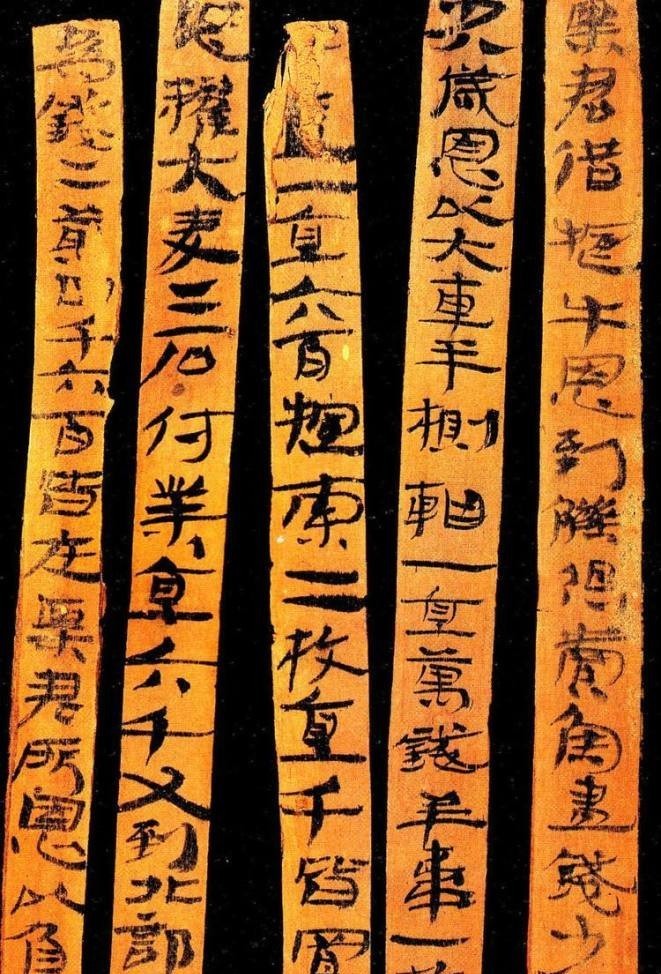 粟君借牛恩到觻得賣魚盡錢少
少八歲恩以大車半軸一直萬錢羊韋一
盧一直六百索二枚直千皆置
恩糴大麥二石付業直六千又到北部
為錢二萬四千六百皆在粟君所恩以負